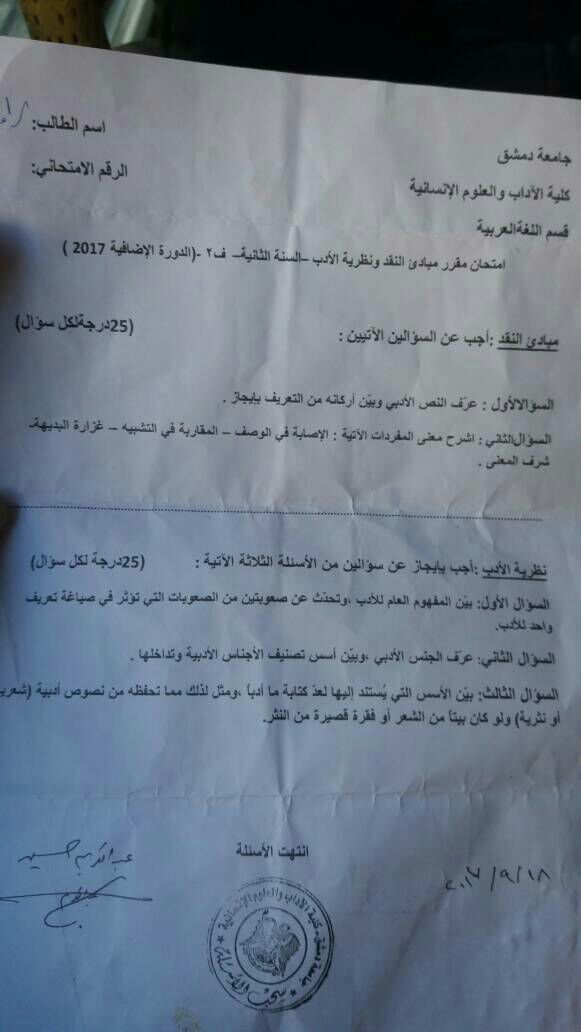 جامعة دمشق
اسم الطالب:
كلية الآداب والعلوم الإنسانية
الرقم الامتحاني:
قسم اللغةالعربية
امتحان مقرر مبادئ النقد ونظرية الأدب –السنة الثانية– ف٢ -(الدورة الإضافية 2017 )
مبادئ النقد :أجب عن السؤالين الآتيين : (25درجةلكل سؤال)
السؤالالأول : عرّف النص الأدبي وبيّن أركانه من التعريف بإيجاز .
السؤالالثاني : اشرح معنى المفردات الآتية : الإصابة في الوصف – المقاربة في التشبيه – غزارة البديهة-
شرف المعنى .
نظرية الأدب :أجب بإيجاز عن سؤالين من الأسئلة الثلاثة الآتية : (25درجة لكل سؤال)
السؤال الأول: بيّن المفهوم العام للأدب ،وتحدّث عن صعوبتين من الصعوبات التي تؤثر في صياغة تعريف
واحد للأدب.
السؤال الثاني: عرّف الجنس الأدبي ،وبيّن أسس تصنيف الأجناس الأدبية وتداخلها .
السؤال الثالث: بيّن الأسس التي يُستند إليها لعدّ كتابة ما أدباً ،ومثل لذلك مما تحفظه من نصوص أدبية (شعرية
أو نثرية) ولو كان بيتاً من الشعر أو فقرة قصيرة من النثر.
انتهت الأسئلة
عبدالكريم حسين
٢٠١٧/٩/١٨
جامعة دمشق - كلية الآداب والعلوم الإنسانية